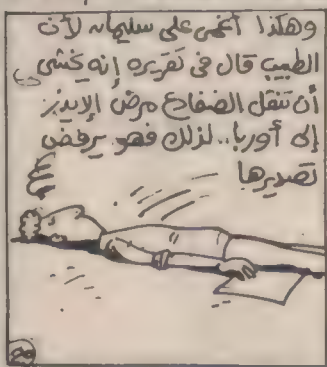 وهكذا أغمى على سليمان لأن
الطبيب قال فى تقريره إنه يخشى
أن تنقل الضفادع مرض الإيدز
إلى أوربا.. لذلك فهو يرفض
تصديرها